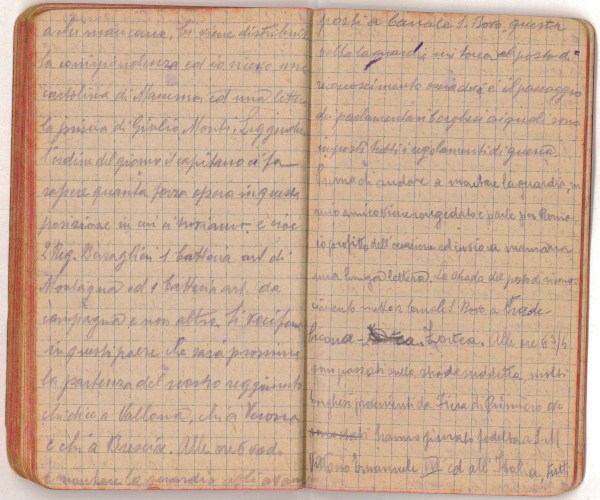 altri mancano. Ci viene distribuita
la corrispondenza ed io ricevo una
cartolina di Mamma ed una lettera
la prima di Giulio Monti. Leggendo
l'ordine del giorno il capitano ci fa
sapere quanta forza opera in questa
posizione in cui ci troviamo, e cioè
2 Reg. Bersaglieri 1 batteria art. di
Montagna ed 1 batteria art. da
campagna e non altro. Si
in questi paesi che sarà prossima
la partenza del nostro reggimento
chi dice a Vallona, chi a Verona
e chi a Brescia. Alle ore 6 vado
a montare la guardia agli avam
posti a Canale S. Bovo. questa
volta la guardia mi tocca al posto di
riconoscimento ossia dov'è il passaggio
di parlamentari borghesi ai quali sono
imposti tutti i regolamenti di guerra.
Prima di andare a montare la guardia, un
mio amico viene congedato e parte per Roma,
io profitto dell'occasione ed invio a mamma
una lunga lettera. La strada del posto di ricono
scimento mette a Canale S. Bovo a
Zortea. Alle ore 6 3/4
son passati sulla strada suddetta molti
borghesi provenienti da Fiera di Primiero ove
hanno giurato fedeltà a S. M.
Vittorio Emanuele III ed all'Italia, tutti